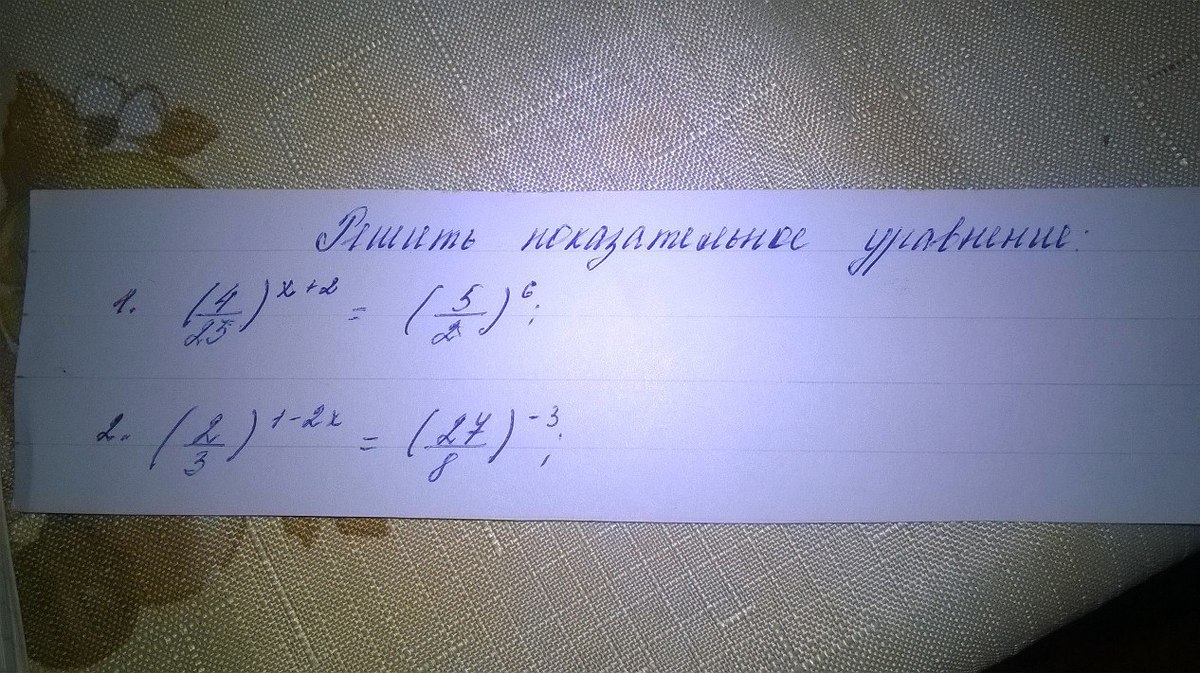 Решить показательное уравнение:
1. (4/25)^(x+2) = (5/2)^6;
2. (2/3)^(1-2x) = (27/8)^(-3);